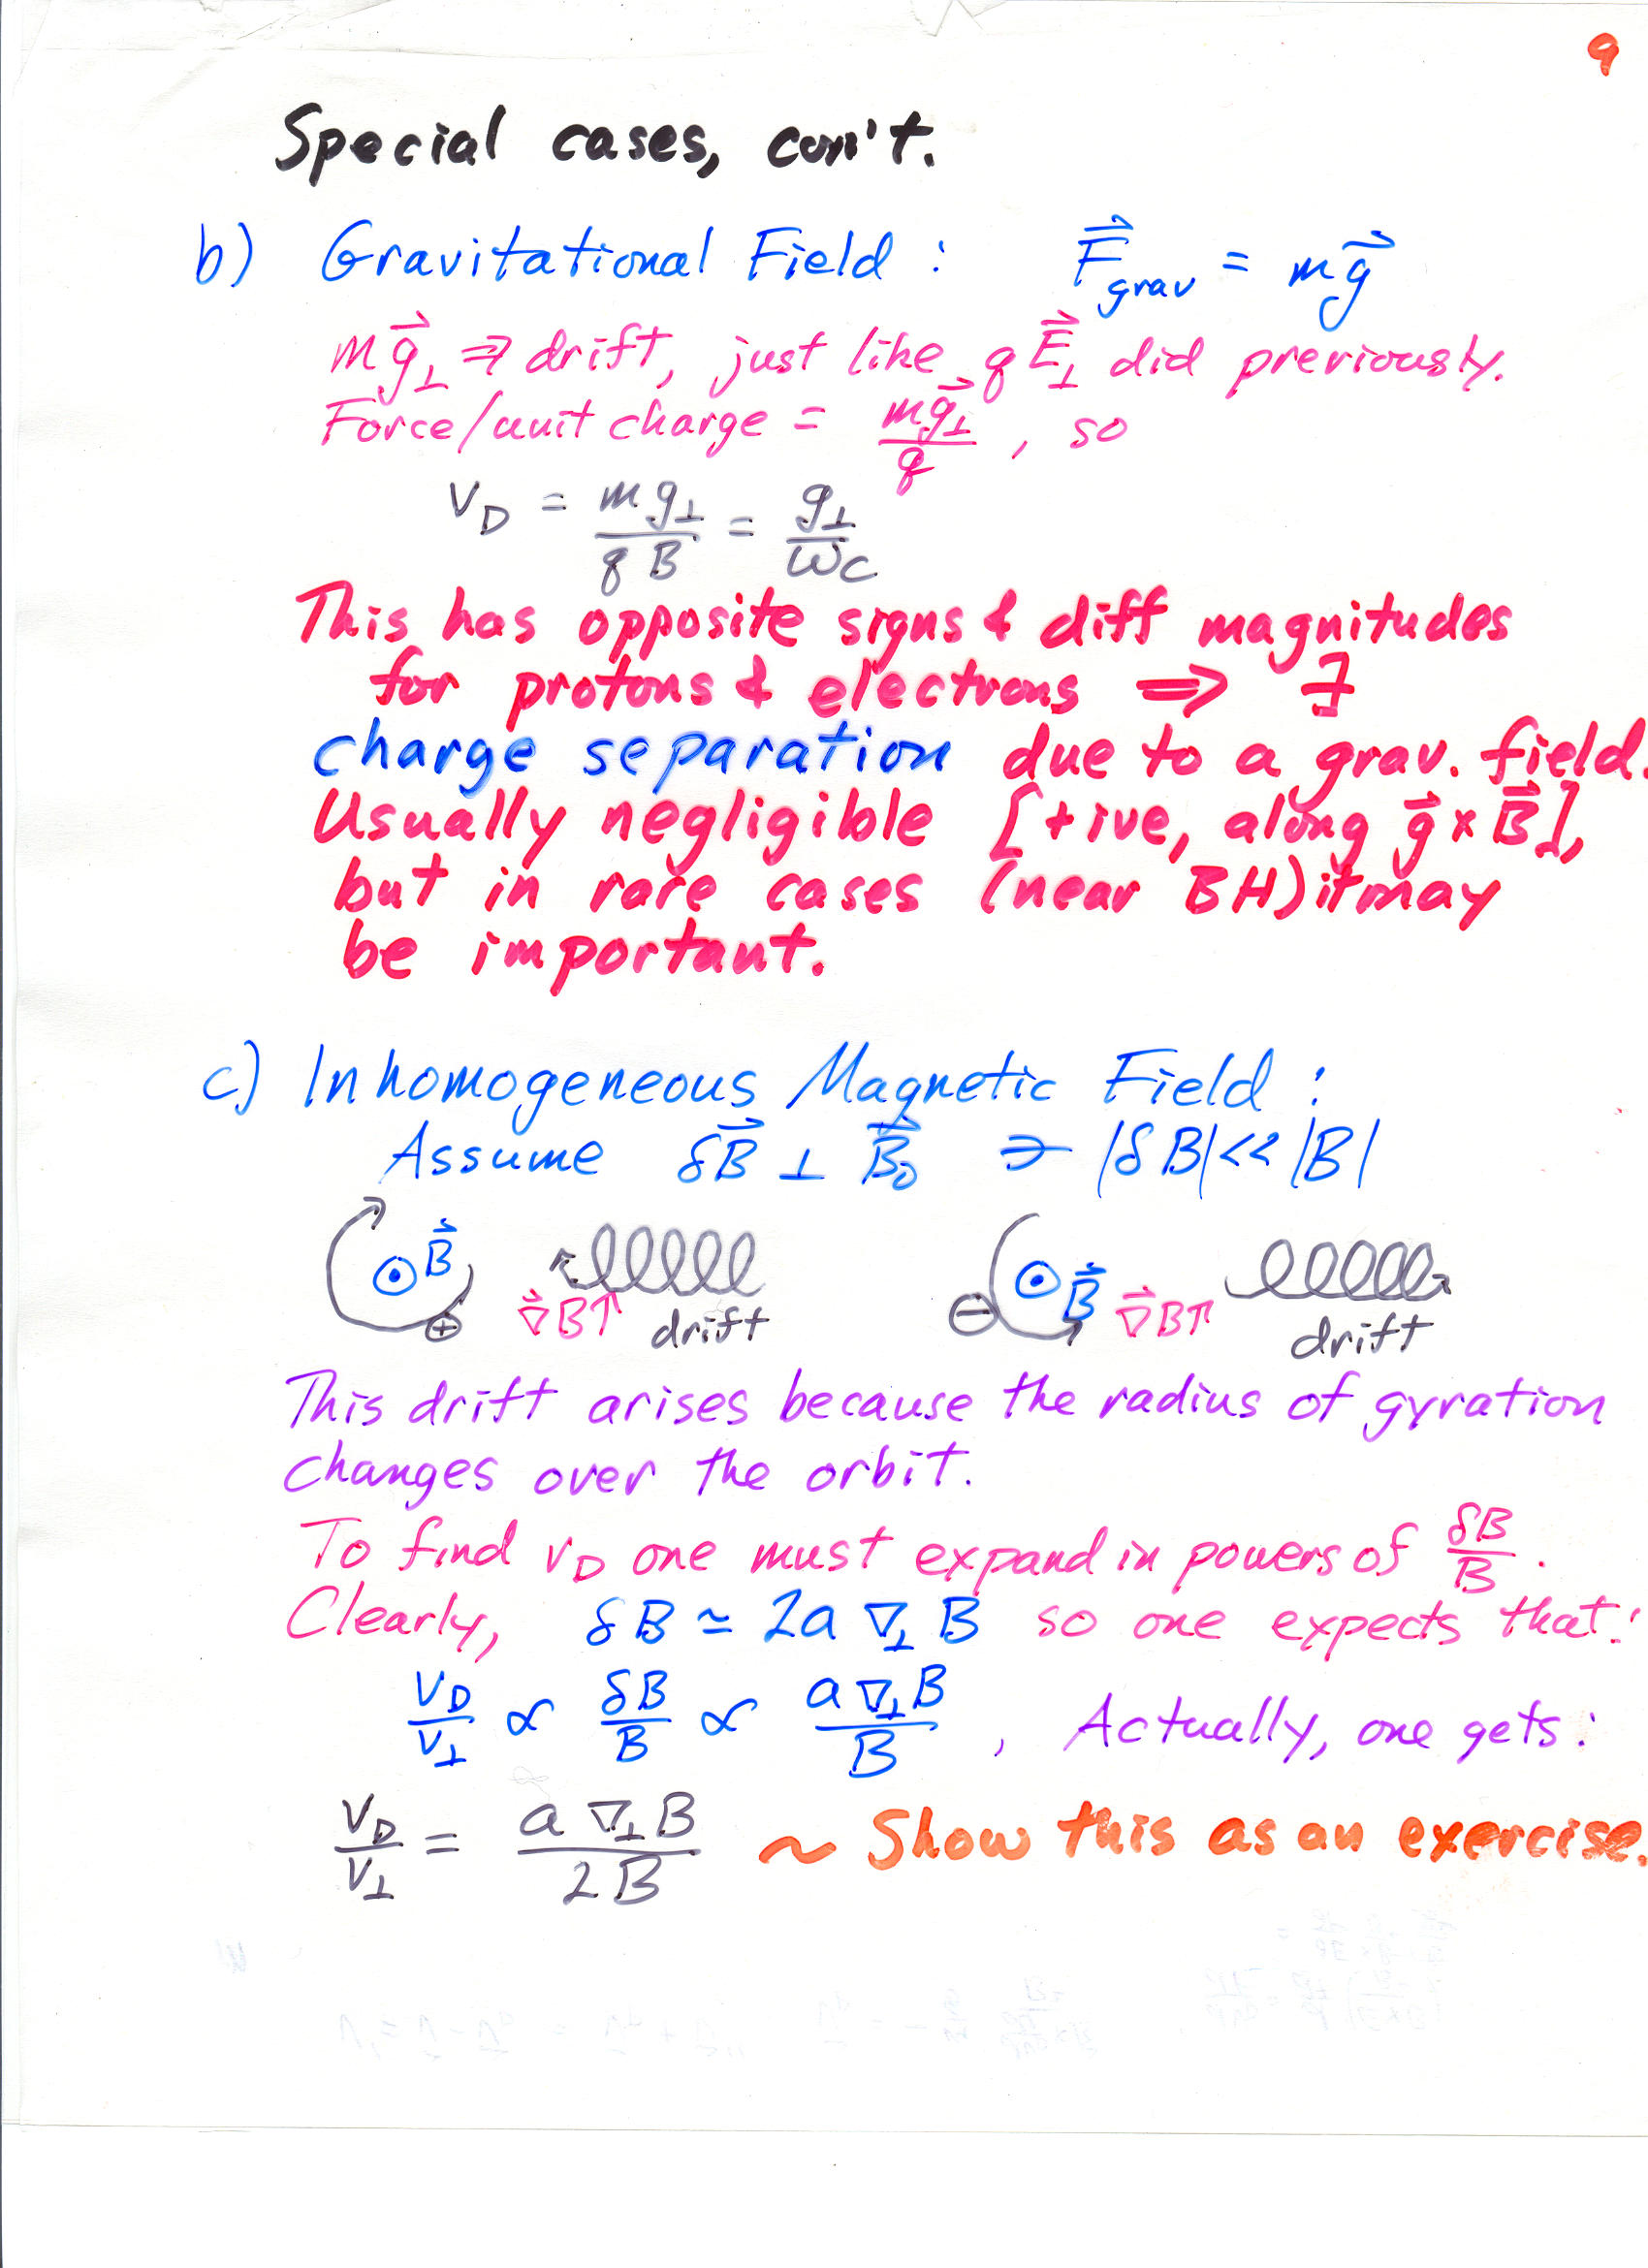 9
Special cases, con't.
b) Gravitational Field : F⃗grav = mg⃗
mg⃗⊥ ⇒ drift, just like qE⃗⊥ did previously.
Force/unit charge = mg⃗⊥/q , so
vD = mg⊥/qB = g⊥/ωc
This has opposite signs & diff magnitudes
for protons & electrons ⇒ ∃
charge separation due to a grav. field.
Usually negligible [+ive, along g⃗ x B⃗],
but in rare cases (near BH) it may
be important.
c) Inhomogeneous Magnetic Field :
Assume δB⃗ ⊥ B⃗₀ ∋ |δB| << |B|
B⃗ + ∇⃗B↑ drift − B⃗ ∇⃗B↑ drift
This drift arises because the radius of gyration
changes over the orbit.
To find vD one must expand in powers of δB/B .
Clearly, δB ≃ 2a ∇⊥B so one expects that:
vD/v⊥ ∝ δB/B ∝ a∇⊥B/B , Actually, one gets :
vD/v⊥ = a∇⊥B/2B ~ Show this as an exercise.